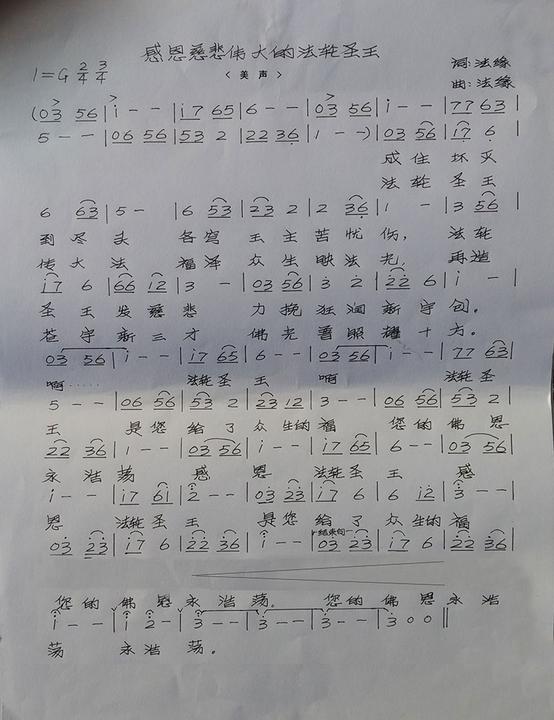 感恩慈悲伟大的法轮圣王
1=G 2/4 3/4
<美声>
词:法缘
曲:法缘
(03 56 | i - - | i7 65 | 6 - - | 03 56 | i - - | 77 63 |
5 - - | 06 56 | 53 2 | 22 36 | 1 - -) | 03 56 | i7 6 |
成住坏灭
法轮圣王
6 63 | 5 - | 6 53 | 23 2 | 2 36 | 1 - | 3 56 |
到尽头 各穹王主苦忧伤, 法轮
传大法 福泽众生映法光, 再造
i7 6 | 66 12 | 3 - | 03 56 | 3 2 | 22 6 | i - |
圣王发慈悲 力挽狂澜新宇创。
苍宇新三才 佛光普照耀十方。
03 56 | i - - | i7 65 | 6 - - | 03 56 | i - - | 77 63 |
啊…… 法轮圣王 啊 法轮圣
5 - - | 06 56 | 53 2 | 23 12 | 3 - - | 06 56 | 53 2 |
王 是您给了众生的福 您的佛恩
22 36 | 1 - - | 03 56 | i - - | i7 65 | 6 - - | 03 56 |
永浩荡 感恩 法轮圣王 感
i - - | i7 61 | 2 - - | 03 23 | i7 6 | 6 i2 | 3 - - |
恩 法轮圣王 是您给了众生的福
结束句
03 23 | i7 6 | 22 36 | i - - | 03 23 | i7 6 | 22 36 |
您的佛恩永浩荡. 您的佛恩永浩
i - - | i 2 - | 3 - - | 3 - - | 3 - - | 3 0 0 ||
荡 永浩荡。